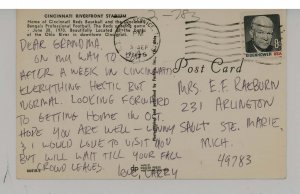 CINCINNATI RIVERFRONT STADIUM
Home of Cincinnati Reds Baseball and the Cincinnati
Bengals Professional Football. The Reds opening game
- June 30, 1970.
of the Ohio River in downtown Cincinnati.
DEAR GRANDMA
ON MY WAY TO
AFTER A WEEK IN CINCINNATI
EVERYTHING HECTIC BUT
NORMAL. LOOKING FORWARD
TO GETTING HOME IN OCT.
HOPE YOU ARE WELL -
I WOULD LOVE TO VISIT YOU
BUT WILL WAIT TILL YOUR FALL
CROWD LEAVES.
Love, LARRY
PM
SEP
EISENHOWER · USA
8c
Post Card
MRS. E.F. RAEBURN
231 ARLINGTON
SAULT STE. MARIE,
MICH.
49783